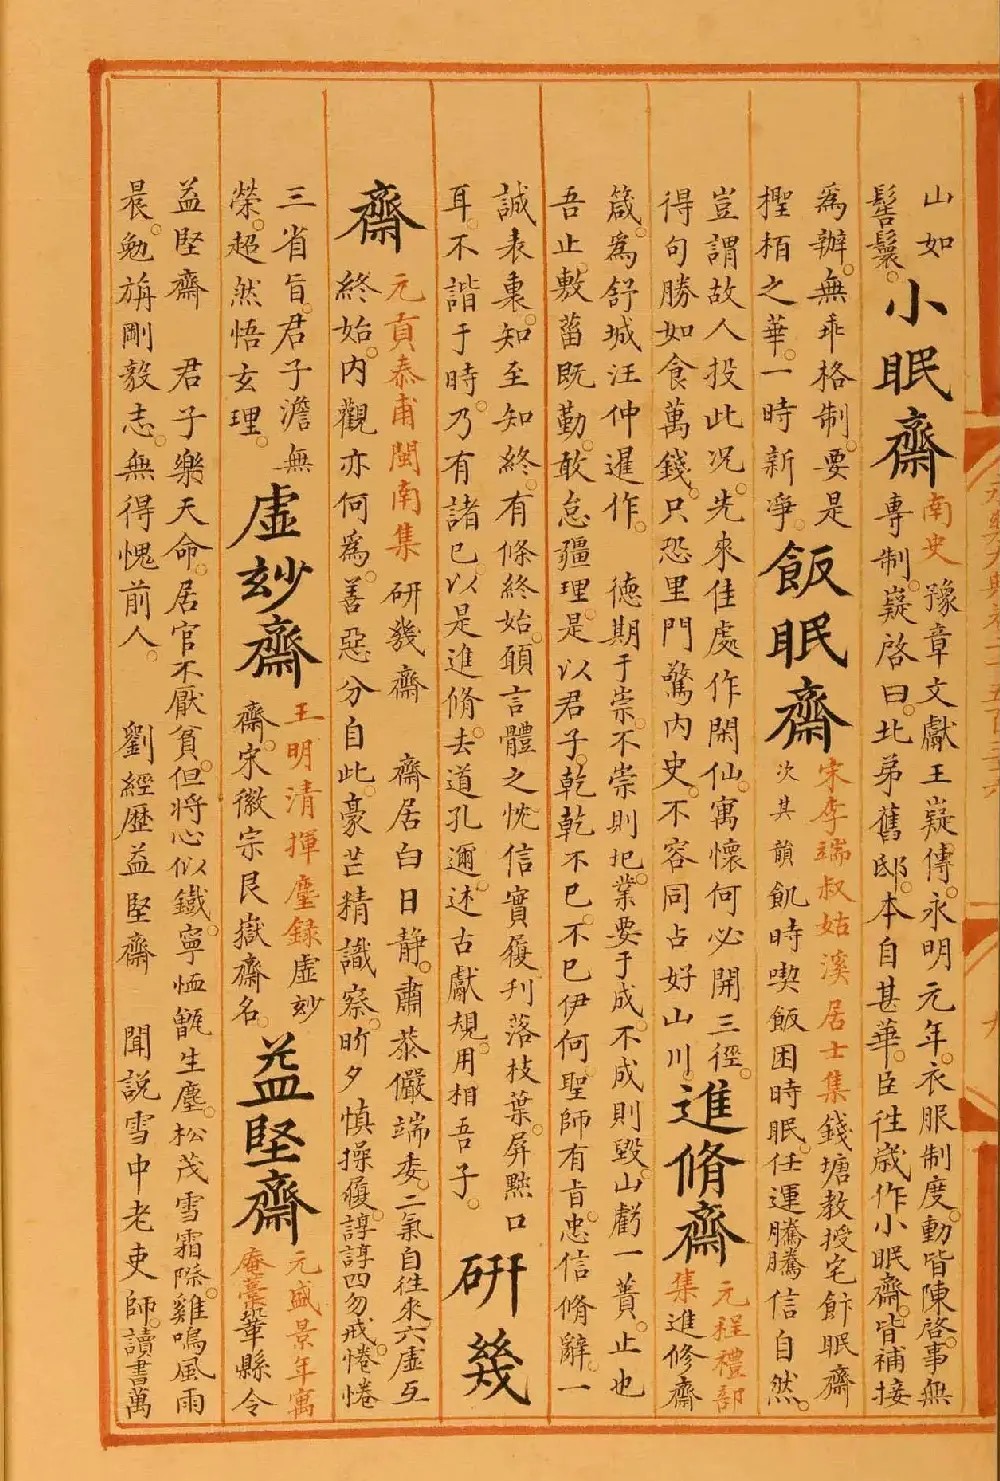 山如
髻鬟。
小眠齋
南史豫章文獻王嶷傳。永明元年。衣服制度。動皆陳啓。事無
專制。嶷啓曰。北弟舊邸。本自甚華。臣往歲作小眠齋。皆補接
爲辦。無乖格制。要是
檉栢之華。一時新淨。
飯眠齋
宋李端叔姑溪居士集錢塘教授宅飰眠齋
次其韻飢時喫飯困時眠。任運騰騰信自然。
豈謂故人投此况。先來佳處作閑仙。寓懷何必開三徑。
得句勝如食萬錢。只恐里門驚内史。不容同占好山川。
進脩齋
元程禮部
集進修齋
箴。爲舒城汪仲暹作。 德期于崇。不崇則圯。業要于成。不成則毁。山虧一蕢。止也
吾止。敷菑既勤。敢怠疆理。是以君子。乾乾不已。不已伊何。聖師有旨。忠信脩辭。一
誠表裏。知至知終。有條終始。頋言體之。忱信實履。刋落枝葉。屏黙口
耳。不諧于時。乃有諸已。以是進脩。去道孔邇。述古獻規。用相吾子。
研幾
齋
元貢泰甫閩南集 研幾齋 齋居白日静。肅恭儼端委。二氣自往來。六虛互
終始。内觀亦何爲。善惡分自此。豪芒精識察。昕夕慎操履。諄諄四勿戒。惓惓
三省旨。君子澹無
榮。超然悟玄理。
虛玅齋
王明清揮麈録虛玅
齋。宋徽宗艮嶽齋名。
益堅齋
元盛景年寓
庵藁華縣令
益堅齋 君子樂天命。居官不厭貧。但將心似鐵。寧恤甑生塵。松茂雪霜際。雞鳴風雨
晨。勉旃剛毅志。無得愧前人。 劉經歷益堅齋 聞説雪中老吏師。讀書萬